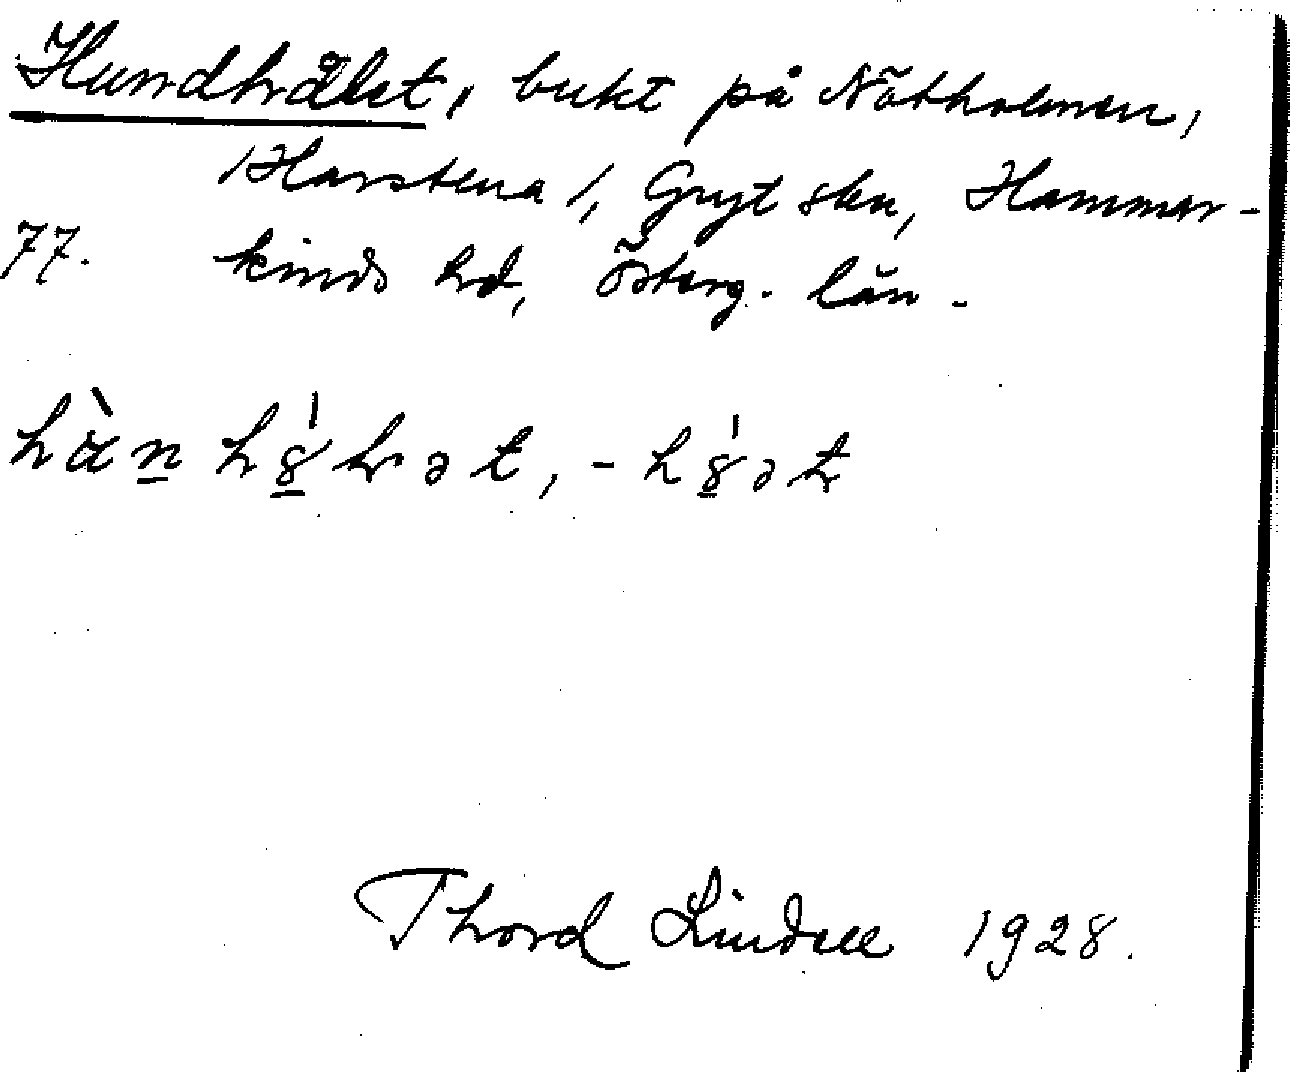 Hundhålet, bukt på Nötholmen,
/Harstena/, Gryt skn, Hammar-
77. kinds hd, Österg. län.
Thord Lindell 1928.